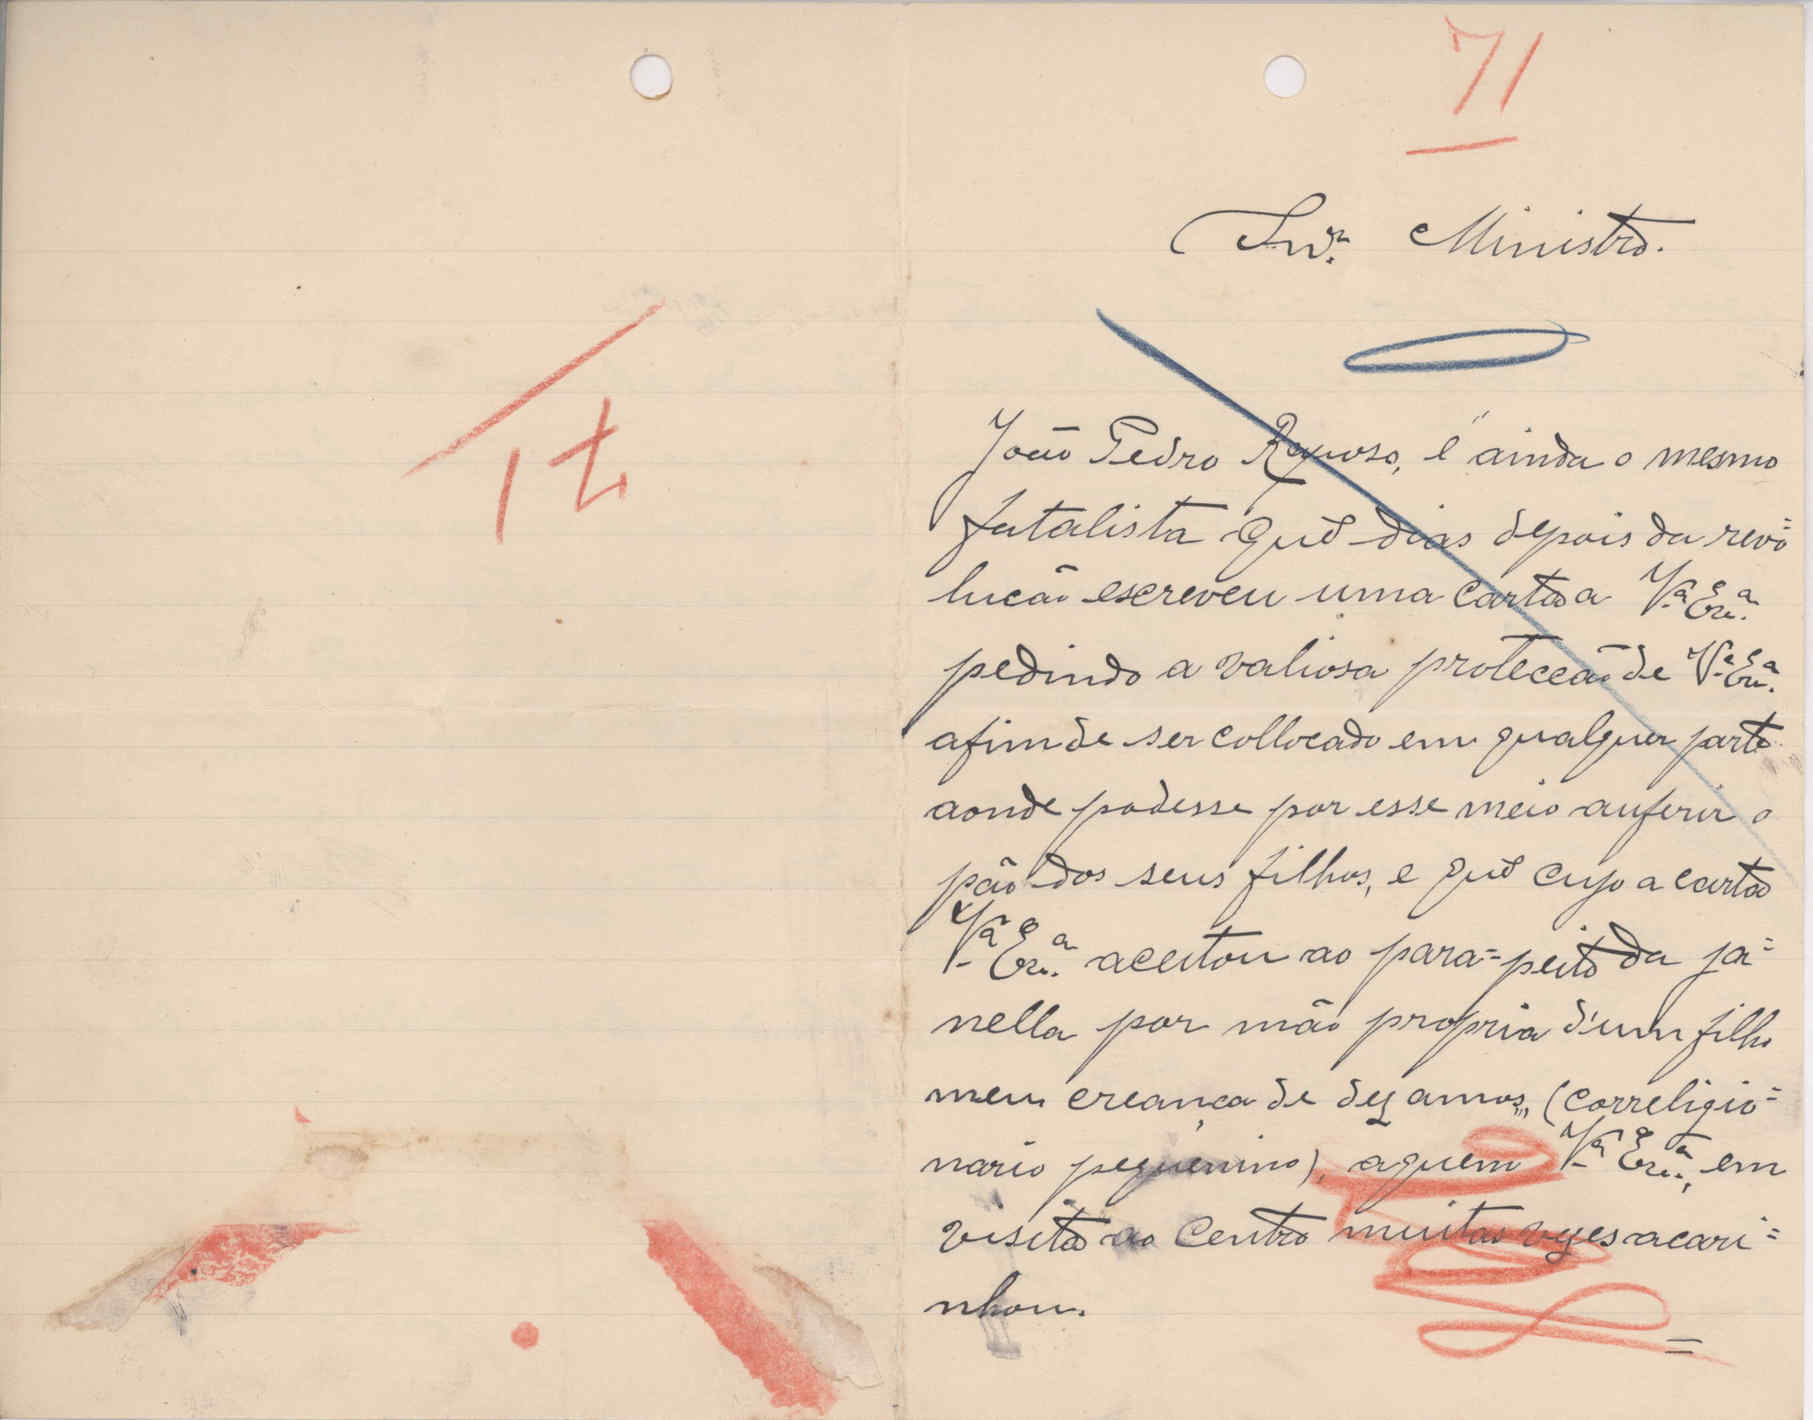 71
Snr. Ministro.
João Pedro Raposo, é ainda o mesmo
fatalista que dias depois da revo=
lucão escreveu uma carta a Va. Exa.
pedindo a valiosa proteccão de Va. Exa.
afim de ser collocado em qualquer parte
aonde podesse por esse meio auferir o
pão dos seus filhos, e que cujo a carta
Va. Exa. aceitou ao para=peito da ja=
nella por mão propria d'um filho
meu creança de dez annos,,, (correligio=
nario pequenino), aquem Va. Exa., em
visita ao Centro muitas vezes acari=
nhou.
=